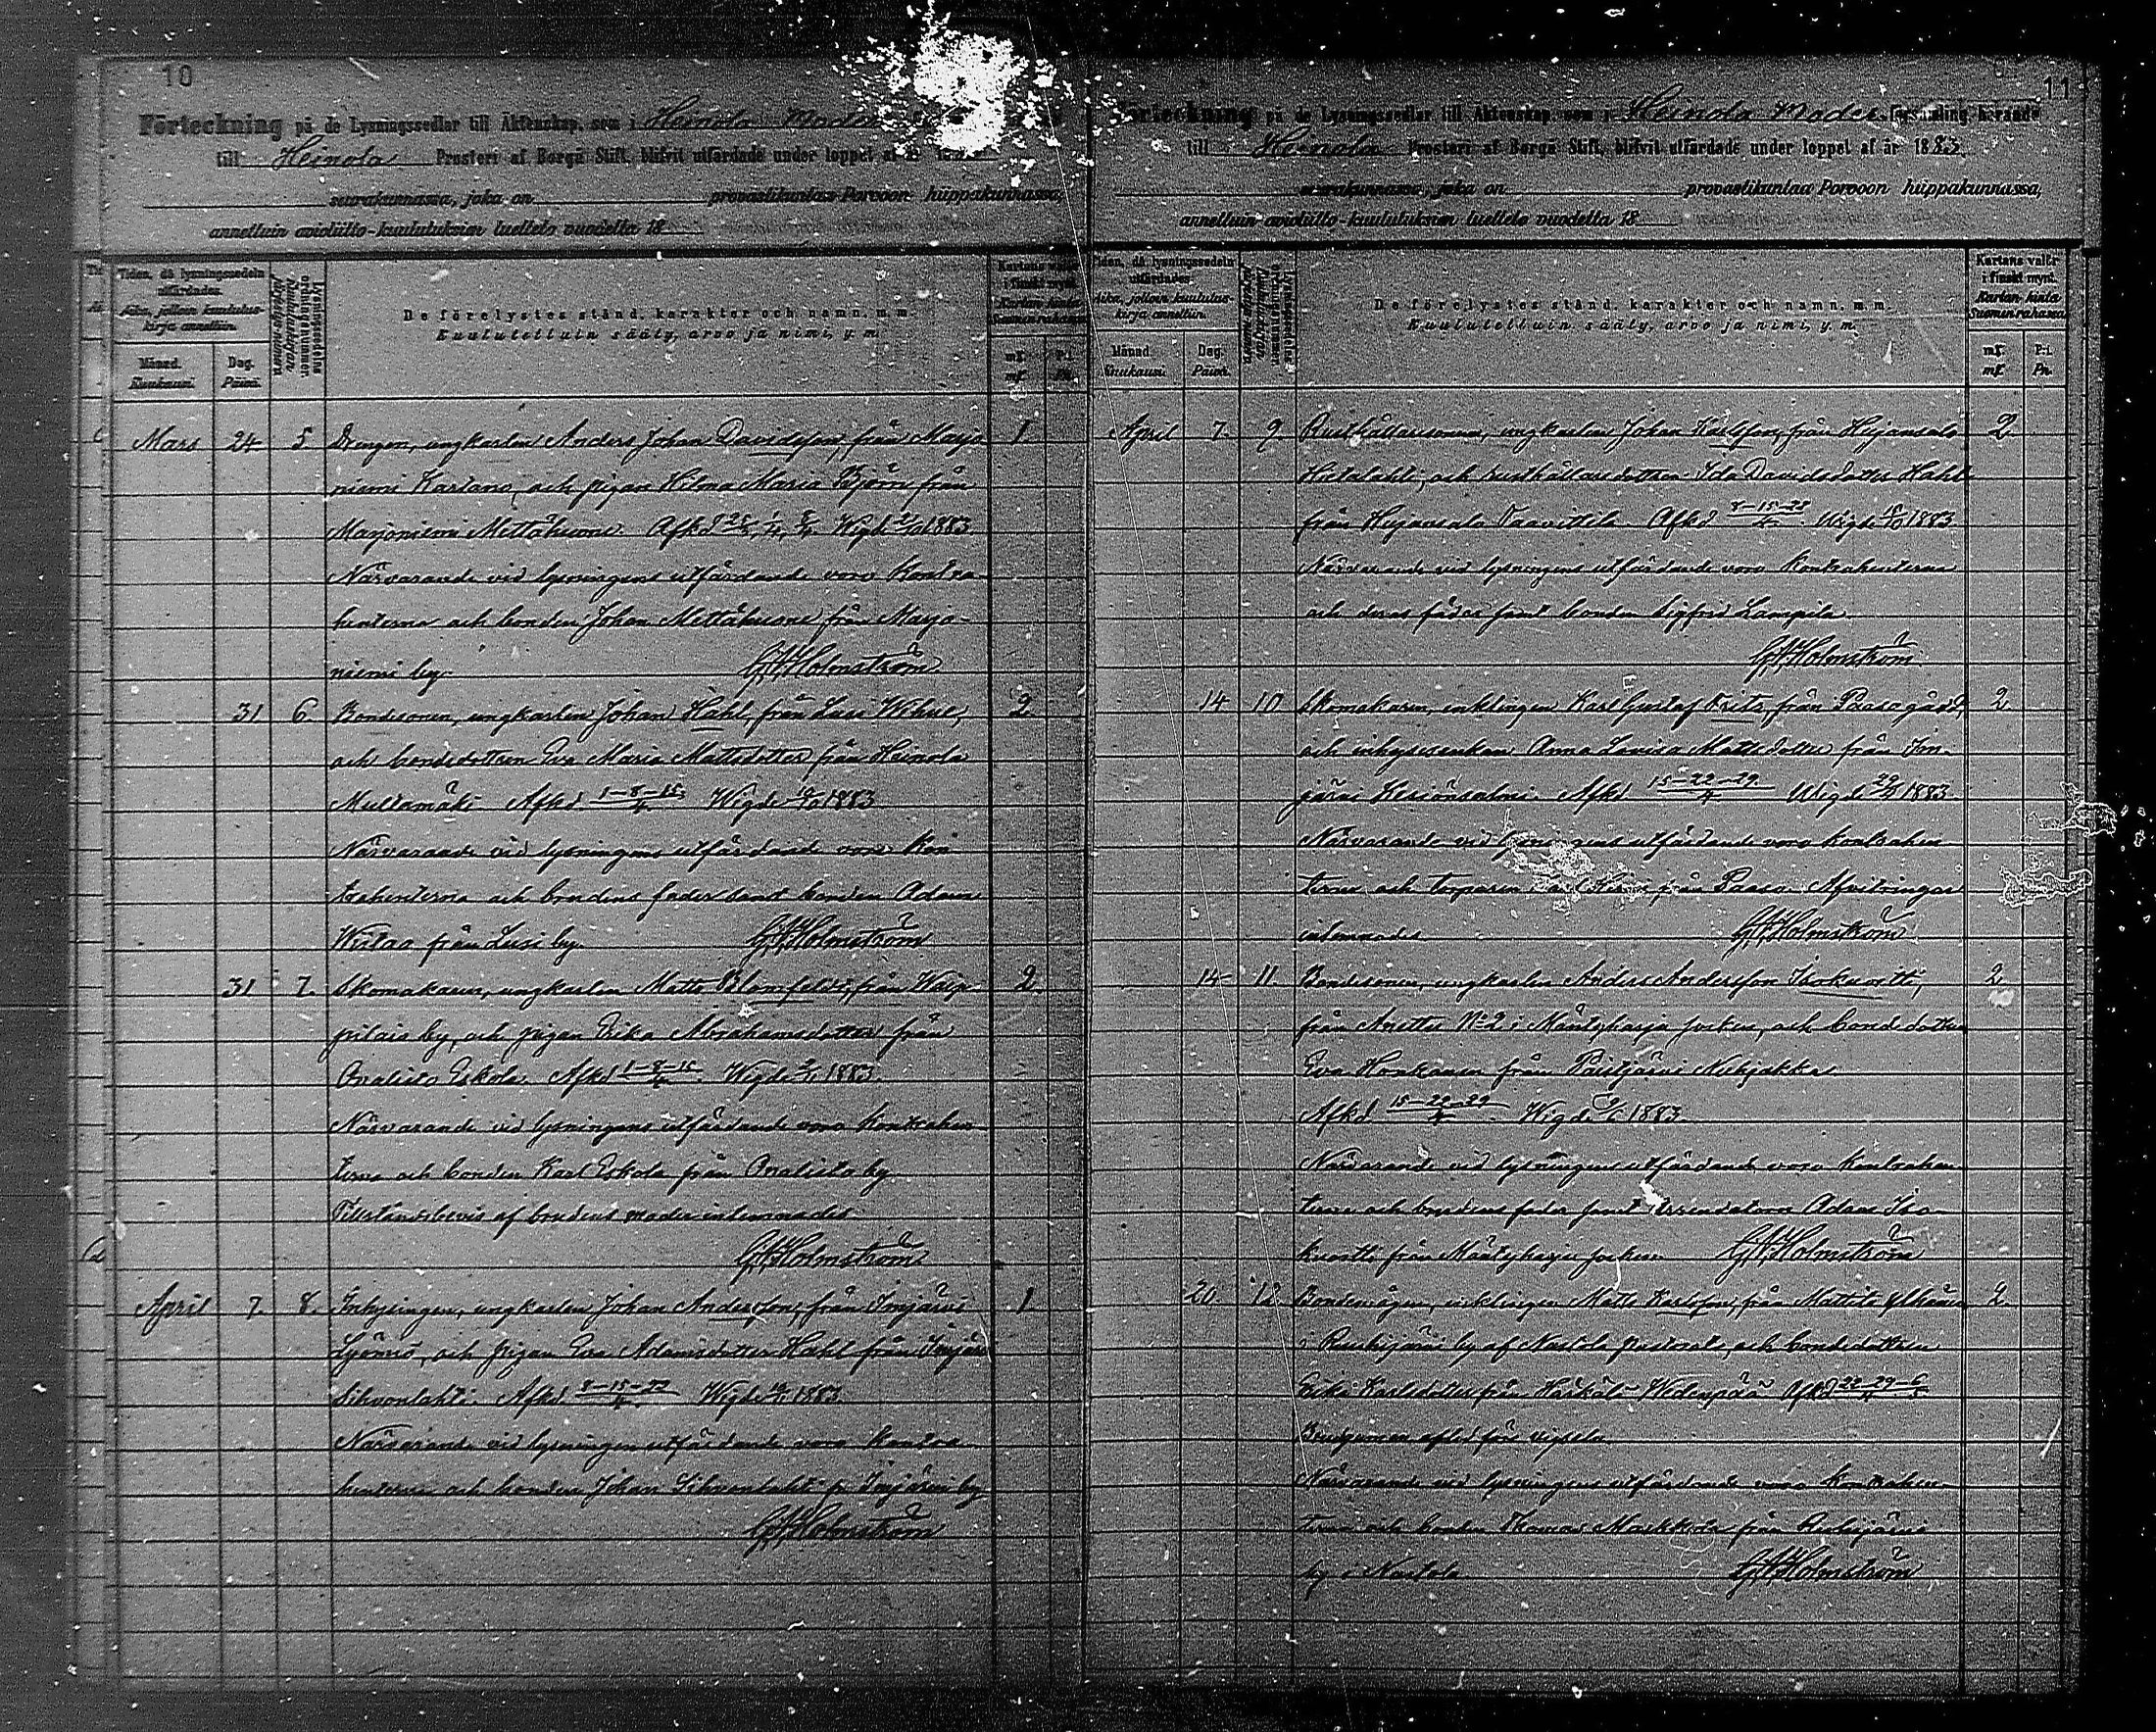 10
Förteckning på de Lysningssedlar till Äktenskap, som i Heinola Moder
till Heinola Prosteri af Borgå Stift, blifvit utfärdade under loppet af år
seurakunnassa, joka on provastikuntaa Porvoon hiippakunnassa,
annettuin avioliitto-kuulutuksien luettelo vuodelta 18
Tiden, då lysningssedeln utfärdades.
Aika, jolloin kuulutuskirja annettiin.
Månad. Kuukausi.
Dag. Päivä.
Lysningssedelns ordningsnummer.
De förelystes stånd, karakter och namn, m. m.
Kuulutettuin sääty, arvo ja nimi, y. m.
Kartans värde i finskt mynt.
Kartan hinta Suomen rahassa
mf. P:i.
mf. Pn.
Mars 24 5 Drengen, ungkarlen Anders Johan Davidsson, från Marjo 1
niemi Kartano, och pigan Helena Maria Björn från
Marjoniemi Mettähuone. Afkd Wigde 1883
Närvarande vid lysningens utfärdande voro Kontra
henterna och bonden Johan Mettähuone från Marjo-
niemi by. G A Holmström
31 6. Bondesonen, ungkarlen Johan Hahl, från Lusi 2.
och bondedottren Eva Maria Mattsdotter från Heinola
Mullamäki Afkd 1-8-15/4 Wigde 1883
Närvarande vid lysningens utfärdande voro Kon
trahenterna och brudens fader samt bonden Adam
från Lusi by. G A Holmström
31 7. Skomakaren, ungkarlen Matts Blomfelt, från Waip 2.
pilais by, och pigan Erika Abrahamsdotter från
Onalisto Eskola. Afkd 1-8-15/4 Wigde 1883.
Närvarande vid lysningens utfärdande voro Kontrahen
terna och bonden Karl Eskola från Onalisto by
Tillståndsbevis af brudens moder inlemnades
G A Holmström
April 7. 8. Inhysingen, ungkarlen Johan Andersson, från Imjärvi 1
och pigan Eva Adamsdotter Hahl från Imjärvi
Sihvonlahti. Afkd 8-15-22/4 Wigde 1883.
Närvarande vid lysningens utfärdande voro Kontra
henterna och bonden Johan Sihvonlahti fr Imjärvi by
G A Holmström
11
Förteckning på de Lysningssedlar till Äktenskap, som i Heinola Moder församling hörande
till Heinola Prosteri af Borgå Stift, blifvit utfärdade under loppet af år 1883.
seurakunnassa, joka on provastikuntaa Porvoon hiippakunnassa,
annettuin avioliitto-kuulutuksien luettelo vuodelta 18
Tiden, då lysningssedeln utfärdades
Aika, jolloin kuulutuskirja annettiin.
Månad. Kuukausi.
Dag. Päivä.
De förelystes stånd, karakter och namn, m. m.
Kuulutettuin sääty, arvo ja nimi, y. m.
Kartans värde i finskt mynt.
Kartan hinta Suomen rahassa
mf. P:i.
mf. Pn.
April 7. 9. Rusthållaresonen, ungkarlen Johan Karlsson, från Hujansalo 2
Hietalahti, och rusthållaredottren Ida Davidsdotter Hahl
från Hujansalo Taavittila Afkd Wigde 1883
Närvarande vid lysningens utfärdande voro Kontrahenterna
och deras fäder samt bonden Sigfrid Lampila.
G A Holmström
14 10 Skomakaren, enklingen Karl Gustaf Frits, från Paaso gård, 2
och inhysesenkan Anna Lovisa Mattsdotter från Im-
järvi Afkd 15-22-29/4 Wigde 1883.
Närvarande vid lysningens utfärdande voro kontrahen
terna och torparen från Paaso. Afvitringar
inlemnades G A Holmström
14 11. Bondesonen, ungkarlen Anders Andersson Isokuortti, 2
från Anttu No 2 i Mäntyharju socken, och bondedottren
Eva Honkanen från Paistjärvi
Afkd 15-22-29/4 Wigde 1883.
Närvarande vid lysningens utfärdande voro kontrahen
terna och brudens fader samt arrendatorn Adam Iso-
kuortti från Mäntyharju socken G A Holmström
12 Bondemågen, enklingen Matts Karlsson, från Mattila 2.
i Ruuhijärvi by af Nastola pastorat, och bondedottren
Karlsdotter från Härkälä Afkd 22-29-6
Brudgummen afled före vigseln.
Närvarande vid lysningens utfärdande voro Kontrahen-
terna och bonden Thomas Markkola från Ruuhijärvi
by i Nastola G A Holmström